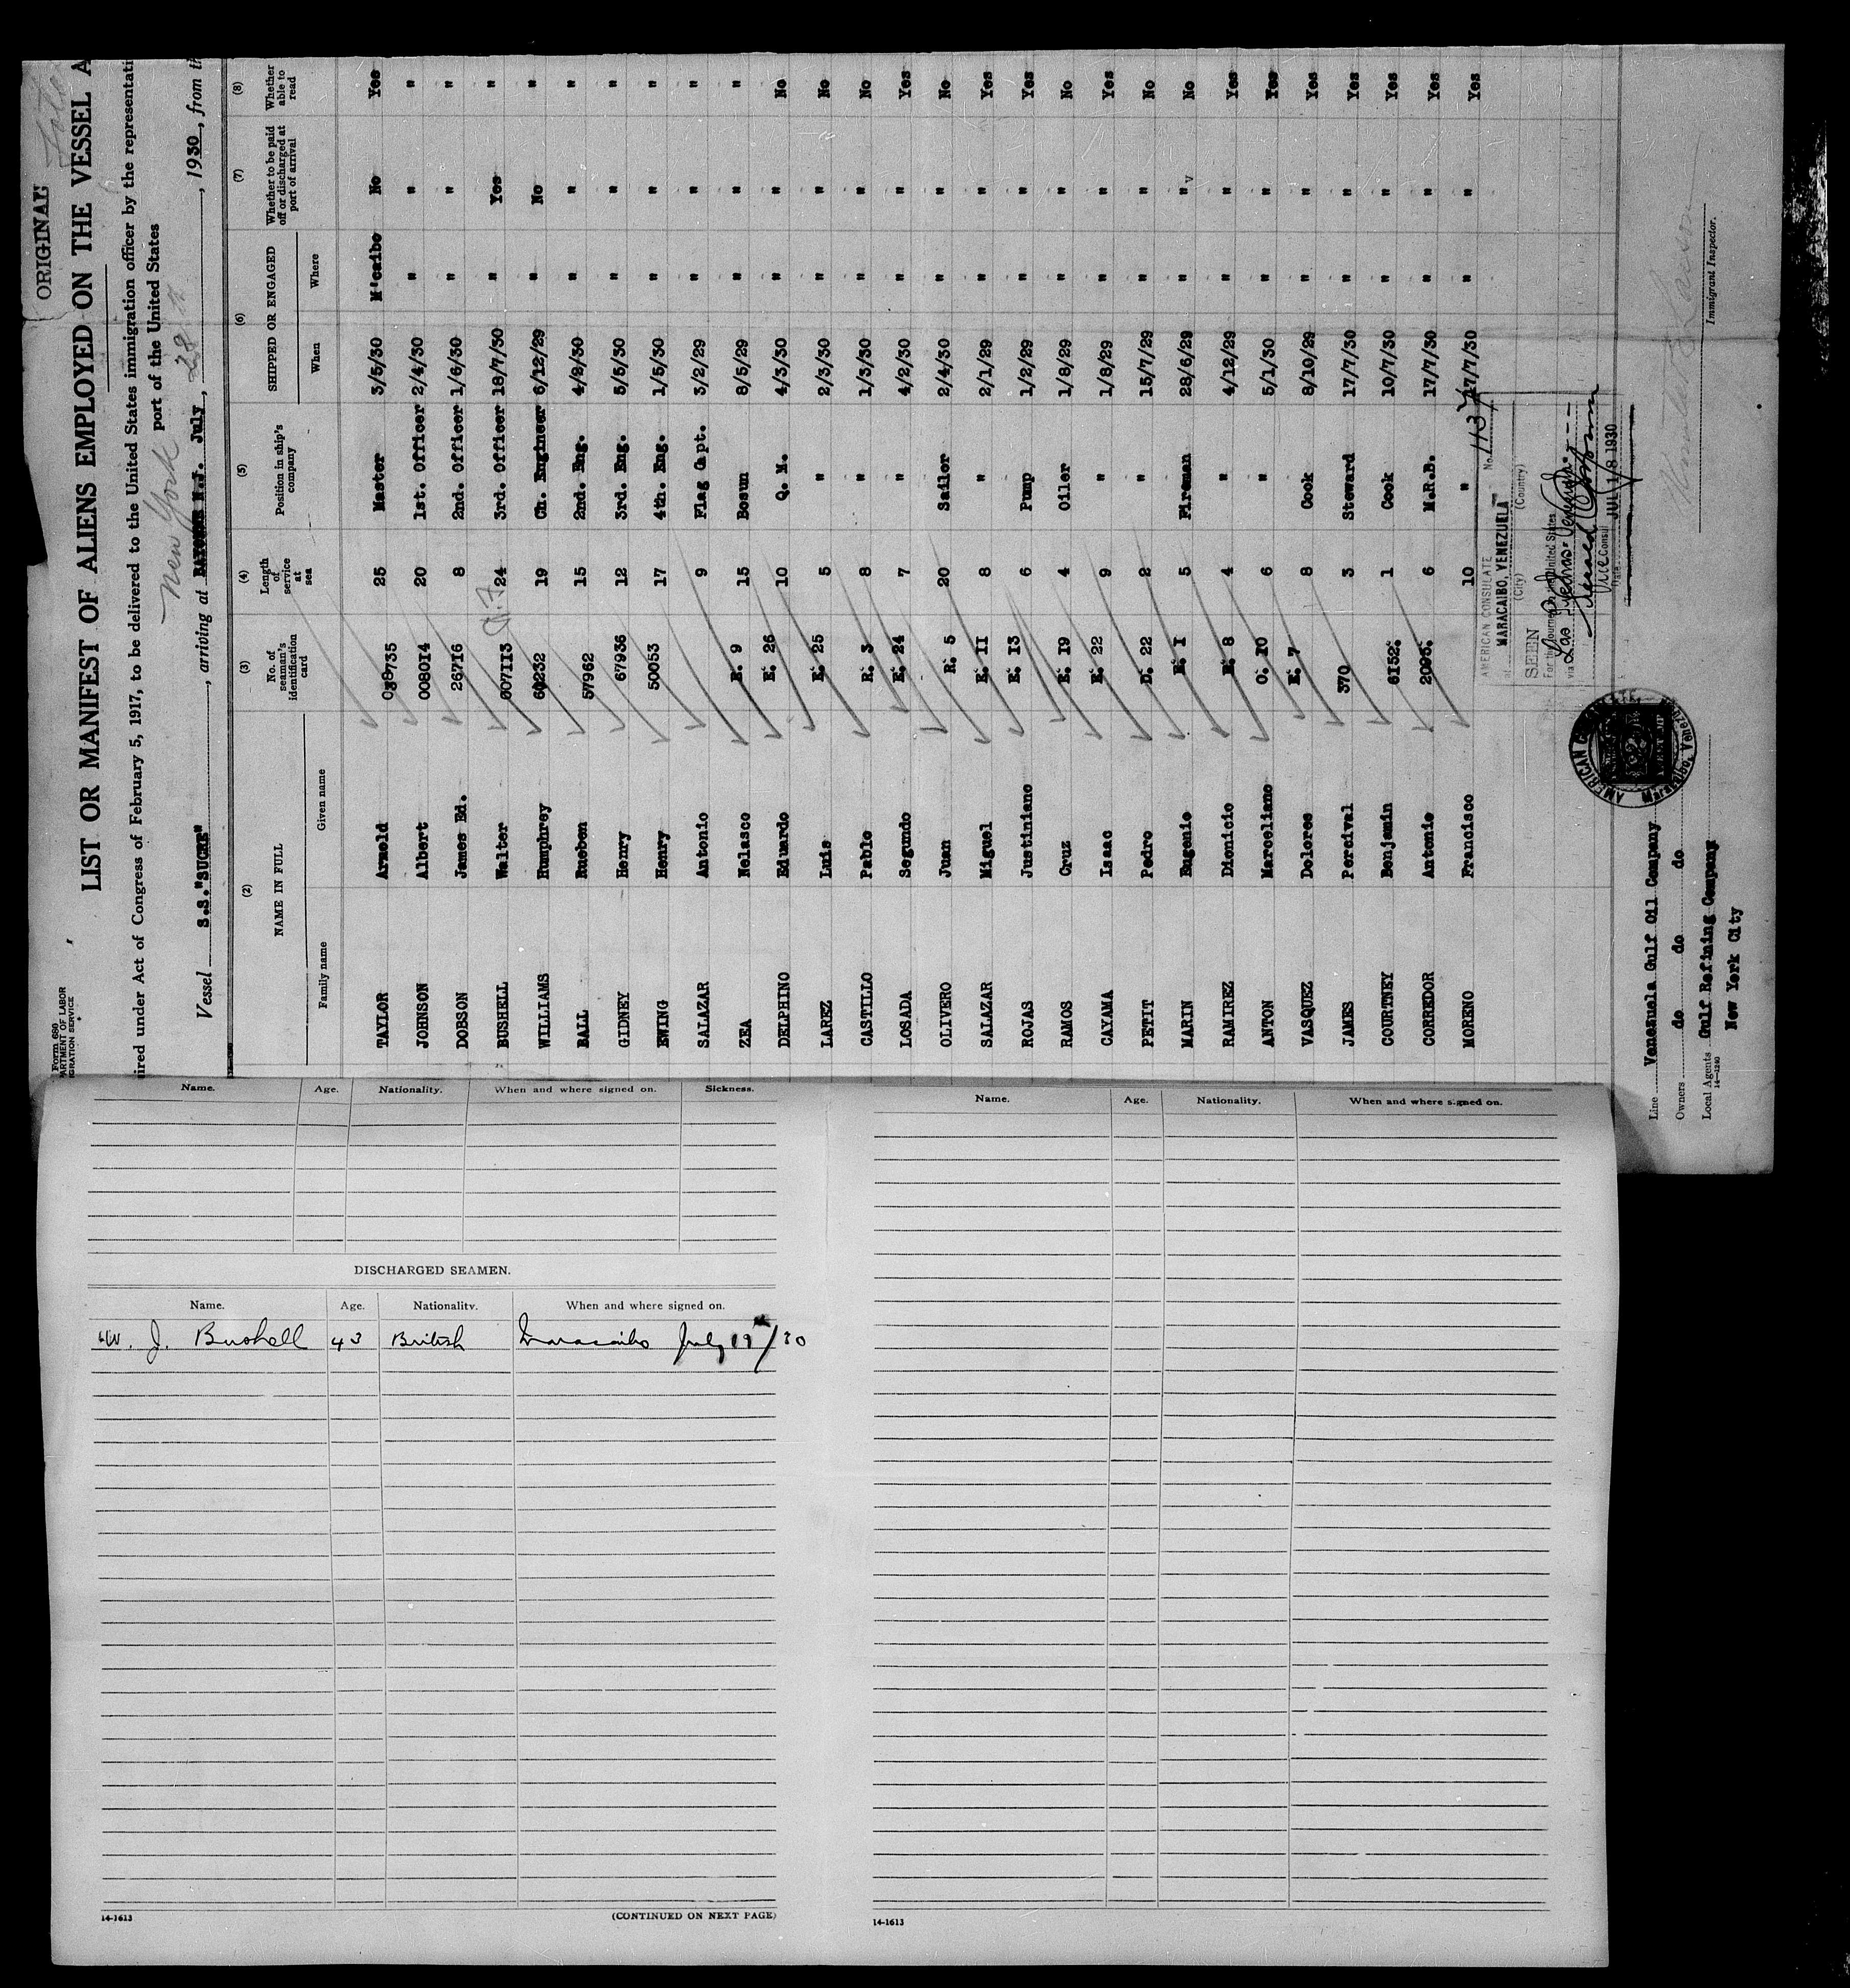 ORIGINAL
Form 689
LIST OR MANIFEST OF ALIENS EMPLOYED ON THE VESSEL A
ired under Act of Congress of February 5, 1917, to be delivered to the United States immigration officer by the representati
port of the United States
New York
Vessel S.S."SUCRE", arriving at BAYONNE N.J. July, 28th, 1930, from th
(2) (3) (4) (5) (6) (7) (8)
NAME IN FULL No. of seaman's identification card Length of service at sea Position in ship's company SHIPPED OR ENGAGED Whether to be paid off or discharged at port of arrival Whether able to read
Family name Given name When Where
TAYLOR Arnold 038735 25 Master 3/5/30 M'caibo No Yes
JOHNSON Albert 008014 20 1st. Officer 2/4/30 " " "
DOBSON James Ed. 26716 8 2nd. Officer 1/6/30 " " "
BUSHELL Walter 607113 24 3rd. Officer 18/7/30 " Yes "
WILLIAMS Humphrey 60232 19 Ch. Engineer 6/12/29 " No "
BALL Rueben 57962 15 2nd. Eng. 4/2/30 " " "
GIDNEY Henry 67936 12 3rd. Eng. 5/5/30 " " "
EWING Henry 50053 17 4th. Eng. 1/5/30 " " "
SALAZAR Antonio 9 Flag Capt. 3/2/29 " " "
ZEA Nolasco E. 9 15 Bosun 8/5/29 " " "
DELPHINO Eduardo E. 26 10 Q. M. 4/3/30 " " No
LAREZ Luis E. 25 5 " 2/3/30 " " No
CASTILLO Pablo R. 3 8 " 1/3/30 " " No
LOSADA Segundo E. 24 7 " 4/2/30 " " Yes
OLIVERO Juan R. 5 20 Sailor 2/4/30 " " No
SALAZAR Miguel E. 11 8 " 2/1/29 " " Yes
ROJAS Justiniano E. 13 6 Pump 1/2/29 " " Yes
RAMOS Cruz E. 19 4 Oiler 1/8/29 " " No
CAYAMA Isaac E. 22 9 " 1/8/29 " " Yes
PETIT Pedro D. 22 2 " 15/7/29 " " No
MARIN Eugenio E. 1 5 Fireman 28/6/29 " " No
RAMIREZ Dionicio E. 8 4 " 4/12/29 " " Yes
ANTON Marceliano C. 10 6 " 5/1/30 " " Yes
VASQUEZ Dolores E. 7 8 Cook 8/10/29 " " Yes
JAMES Percival 370 3 Steward 17/7/30 " " Yes
COURTNEY Benjamin 6152. 1 Cook 10/7/30 " " Yes
CORREDOR Antonio 2095. 6 M.R.B. 17/7/30 " " Yes
MORENO Francisco 10 " 17/7/30 " " Yes
AMERICAN CONSULATE No. 1137
MARACAIBO, VENEZUELA
(City) (Country)
SEEN
For the journey to the United States
via Las Piedras, Venezuela
Vice Consul
Date JUL 18 1930
AMERICAN CONSULATE
Maracaibo, Venezuela
Line Venezuela Gulf Oil Company
Owners do do do
Local Agents Gulf Refining Company
New York City
14-1240
Immigrant Inspector.
Name. Age. Nationality. When and where signed on. Sickness.
DISCHARGED SEAMEN.
Name. Age. Nationality. When and where signed on.
W. J. Bushell 43 British Maracaibo July 19th/30
14-1613
(CONTINUED ON NEXT PAGE)
Name. Age. Nationality. When and where signed on.
14-1613